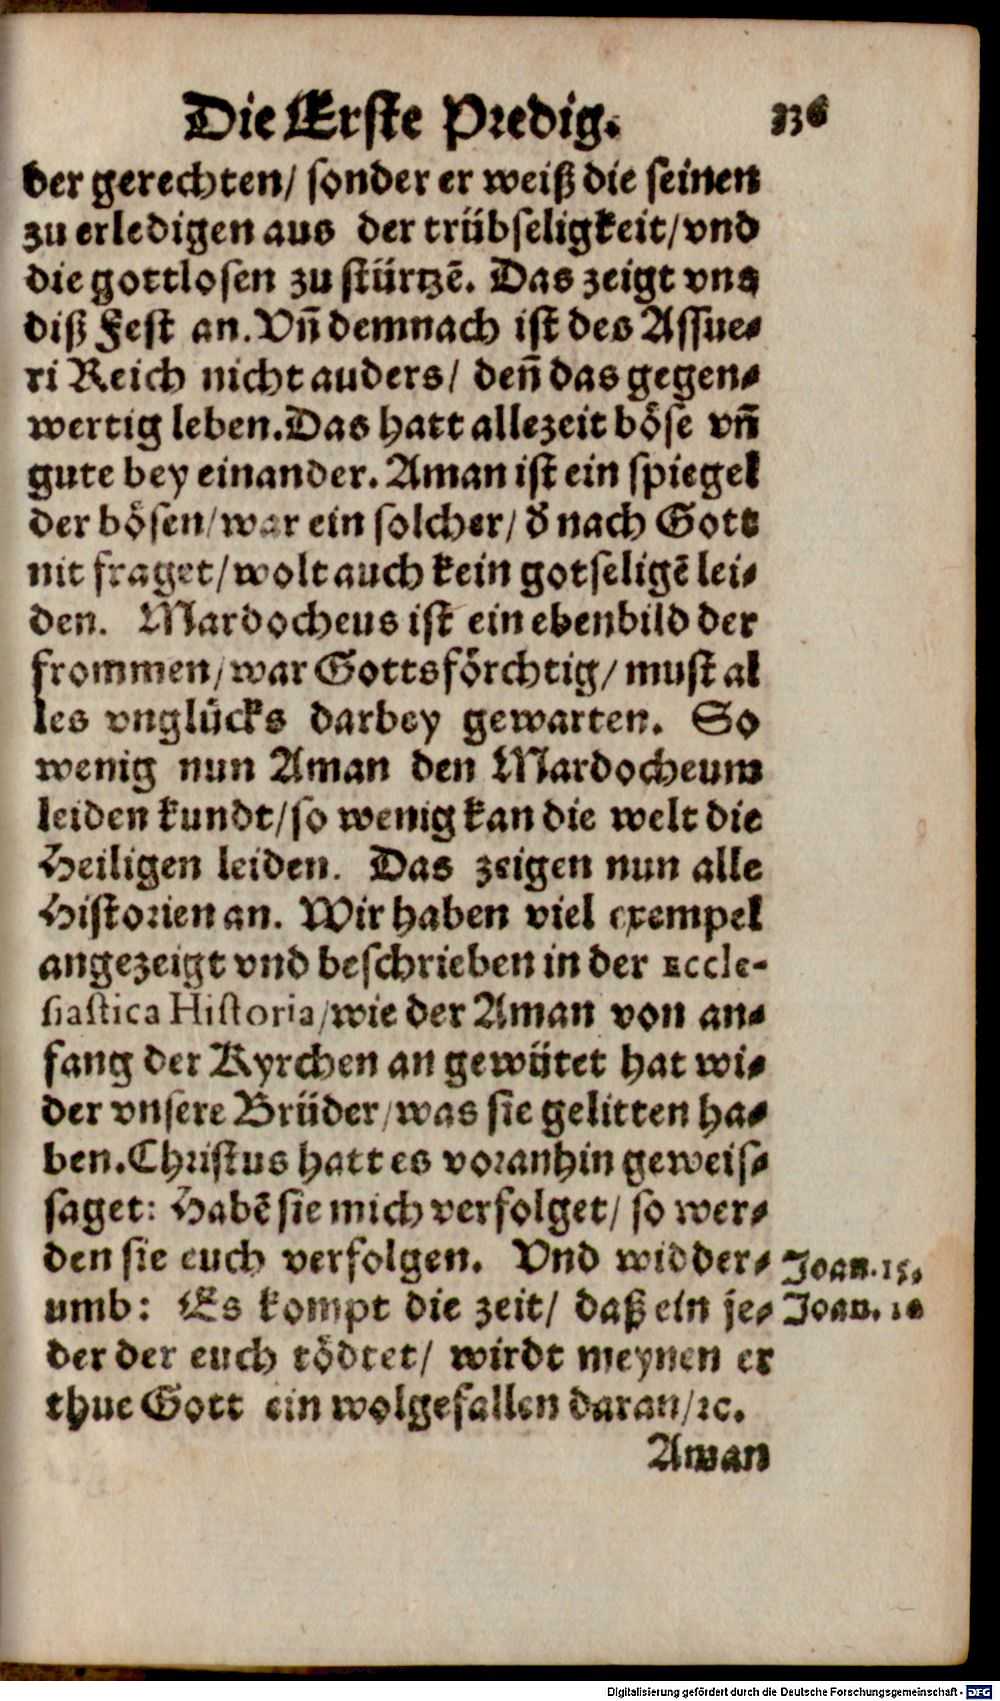 Die Erste Predig. 136
der gerechten/ sonder er weiß die seinen
zu erledigen aus der trübseligkeit/vnd
die gottlosen zu stürtzẽ. Das zeigt vns
diß Fest an. Vñ demnach ist des Assue-
ri Reich nicht auders/ deñ das gegen-
wertig leben. Das hatt allezeit böse vñ
gute bey einander. Aman ist ein spiegel
der bösen/war ein solcher/ d̓ nach Gott
nit fraget/wolt auch kein gotseligẽ lei-
den. Mardocheus ist ein ebenbild der
frommen/war Gottsförchtig/ must al
les vnglücks darbey gewarten. So
wenig nun Aman den Mardocheum
leiden kundt/so wenig kan die welt die
Heiligen leiden. Das zeigen nun alle
Historien an. Wir haben viel exempel
angezeigt vnd beschrieben in der Eccle-
siastica Historia/wie der Aman von an-
fang der Kyrchen an gewütet hat wi-
der vnsere Brüder/was sie gelitten ha-
ben. Christus hatt es voranhin geweis-
saget: Habẽ sie mich verfolget/ so wer-
den sie euch verfolgen. Vnd widder- Joan. 15.
umb: Es kompt die zeit/ daß ein je- Joan. 16
der der euch tödtet/ wirdt meynen er
thue Gott ein wolgefallen daran/ꝛc.
Aman
Digitalisierung gefördert durch die Deutsche Forschungsgemeinschaft - DFG